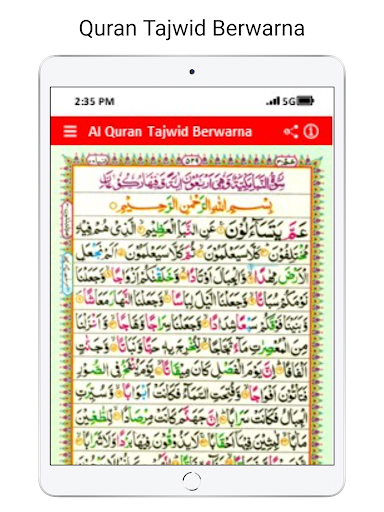 Quran Tajwid Berwarna
2:35 PM 5G
Al Quran Tajwid Berwarna
٥٢٩
سُوْرَةُ النَّبَاِ مَكِّيَّةٌ وَّهِيَ اَرْبَعُوْنَ اٰيَةً وَّفِيْهَا رُكُوْعَانِ
بِسْمِ اللّٰهِ الرَّحْمٰنِ الرَّحِيْمِ
عَمَّ يَتَسَآءَلُوْنَ عَنِ النَّبَاِ الْعَظِيْمِ الَّذِىْ هُمْ فِيْهِ
مُخْتَلِفُوْنَ كَلَّا سَيَعْلَمُوْنَ ثُمَّ كَلَّا سَيَعْلَمُوْنَ اَلَمْ نَجْعَلِ
الْاَرْضَ مِهٰدًا وَّالْجِبَالَ اَوْتَادًا وَّخَلَقْنٰكُمْ اَزْوَاجًا وَّجَعَلْنَا
نَوْمَكُمْ سُبَاتًا وَّجَعَلْنَا الَّيْلَ لِبَاسًا وَّجَعَلْنَا النَّهَارَ مَعَاشًا
وَّبَنَيْنَا فَوْقَكُمْ سَبْعًا شِدَادًا وَّجَعَلْنَا سِرَاجًا وَّهَّاجًا وَّاَنْزَلْنَا
مِنَ الْمُعْصِرٰتِ مَآءً ثَجَّاجًا لِّنُخْرِجَ بِهٖ حَبًّا وَّنَبَاتًا وَّجَنّٰتٍ
اَلْفَافًا اِنَّ يَوْمَ الْفَصْلِ كَانَ مِيْقَاتًا يَّوْمَ يُنْفَخُ فِى الصُّوْرِ
فَتَاْتُوْنَ اَفْوَاجًا وَّفُتِحَتِ السَّمَآءُ فَكَانَتْ اَبْوَابًا وَّسُيِّرَتِ
الْجِبَالُ فَكَانَتْ سَرَابًا اِنَّ جَهَنَّمَ كَانَتْ مِرْصَادًا لِّلطَّاغِيْنَ
مَاٰبًا لّٰبِثِيْنَ فِيْهَآ اَحْقَابًا لَا يَذُوْقُوْنَ فِيْهَا بَرْدًا وَّلَا شَرَابًا